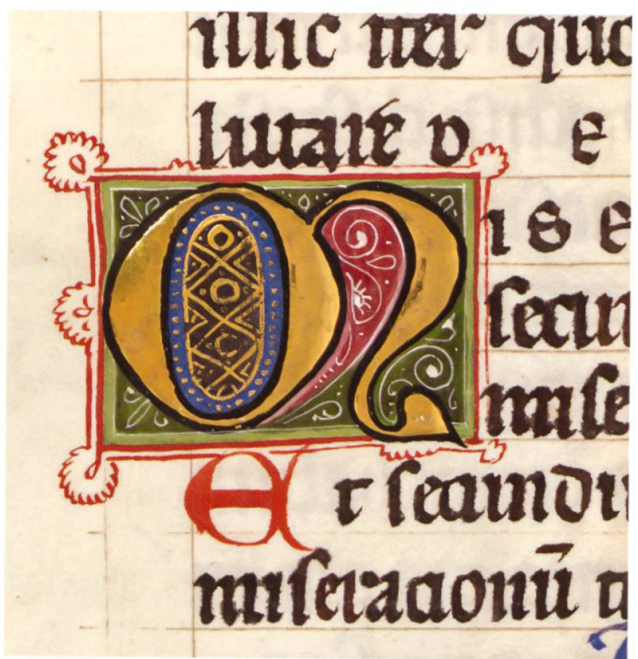 illic iter quo
lutare d E
M i s e
secun
mise
Et secundu
miseracionū t